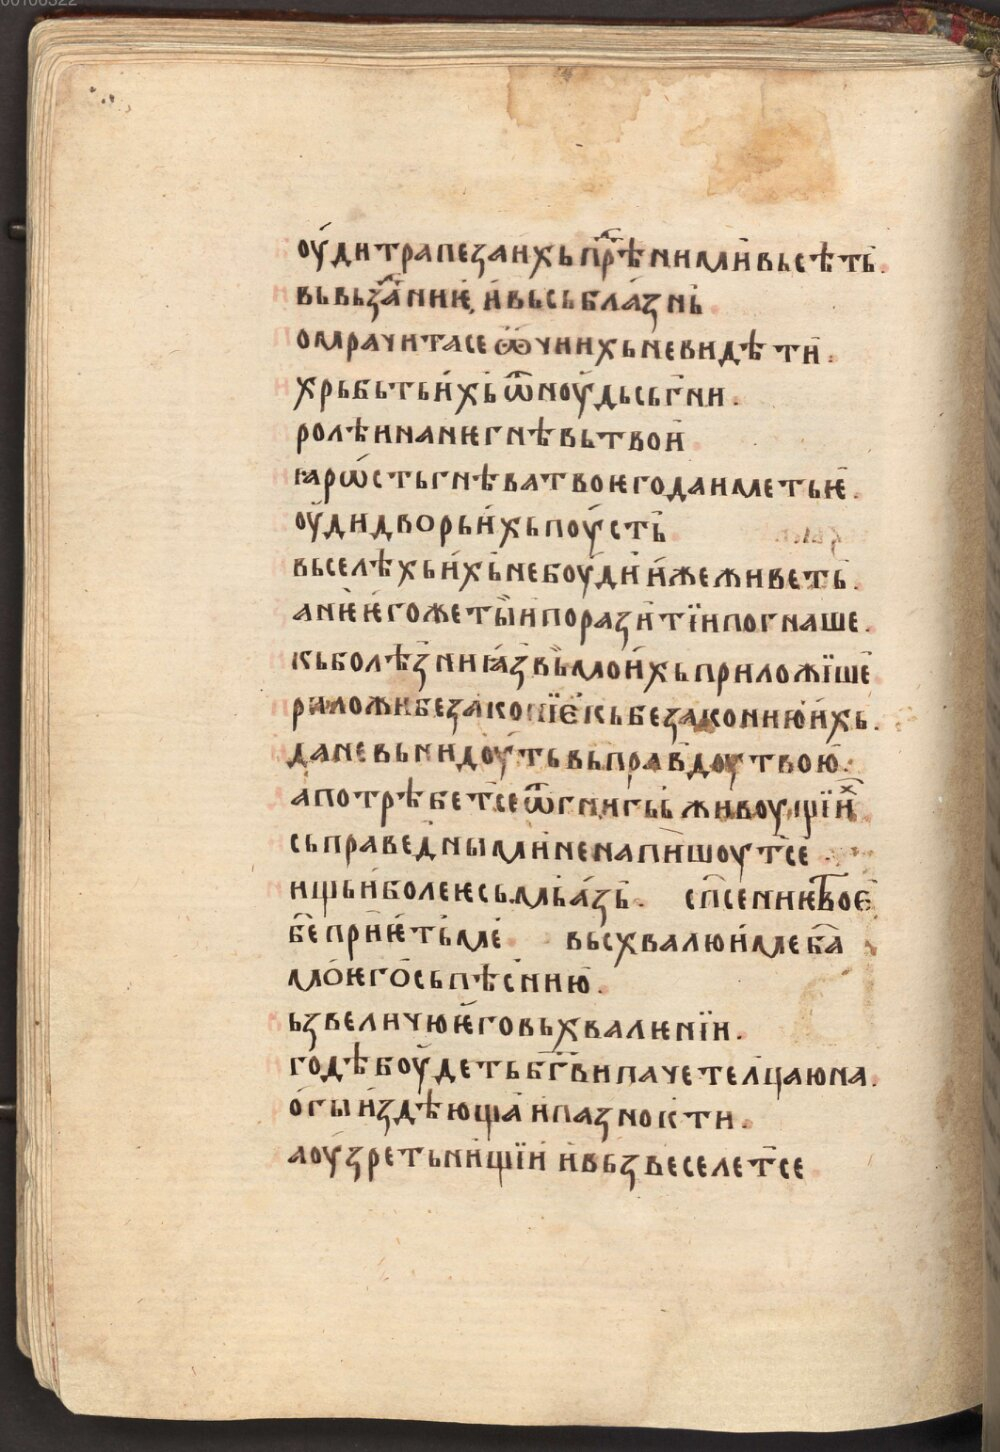 оу́ди трапеза ихь прⷣѣ ними вь сѣть.
вь вьзⷣаание, и вь сьблазнь
омрачита се ѻчи ихь не видѣти.
хрьбьть ихь ѿноудь сьгни.
ролѣи на ние гнѣвь твои
ꙗрѡсть гнѣва твоѥго да имет ѥ.
оуди дворь ихь поусть
вь селѣхь ихь не боуди иже живеть.
ане ѥгоже ты и порази тїи погнаше.
кь болѣзни ꙗзвь моихь приложїше
риложи безаконїе кь безаконию ихь.
да не вьнидоуть вь правдоу твою.
а потрѣбет се ѿ книгы живоущїиⷯ
сь праведными не напишоут се
ищь и болеѥ сьмь азь. сп҃сениѥ твоѥ
б҃е приѥть ме вьсхвалю име б҃а
моѥго сь пѣснию.
ьзвеличю ѥго вь хвалѥнїи.
годѣ боудеть бг҃ви паче телца юна.
огы издѣюща и пазнокти.
а оузреть нищїи и вьзвеселет се